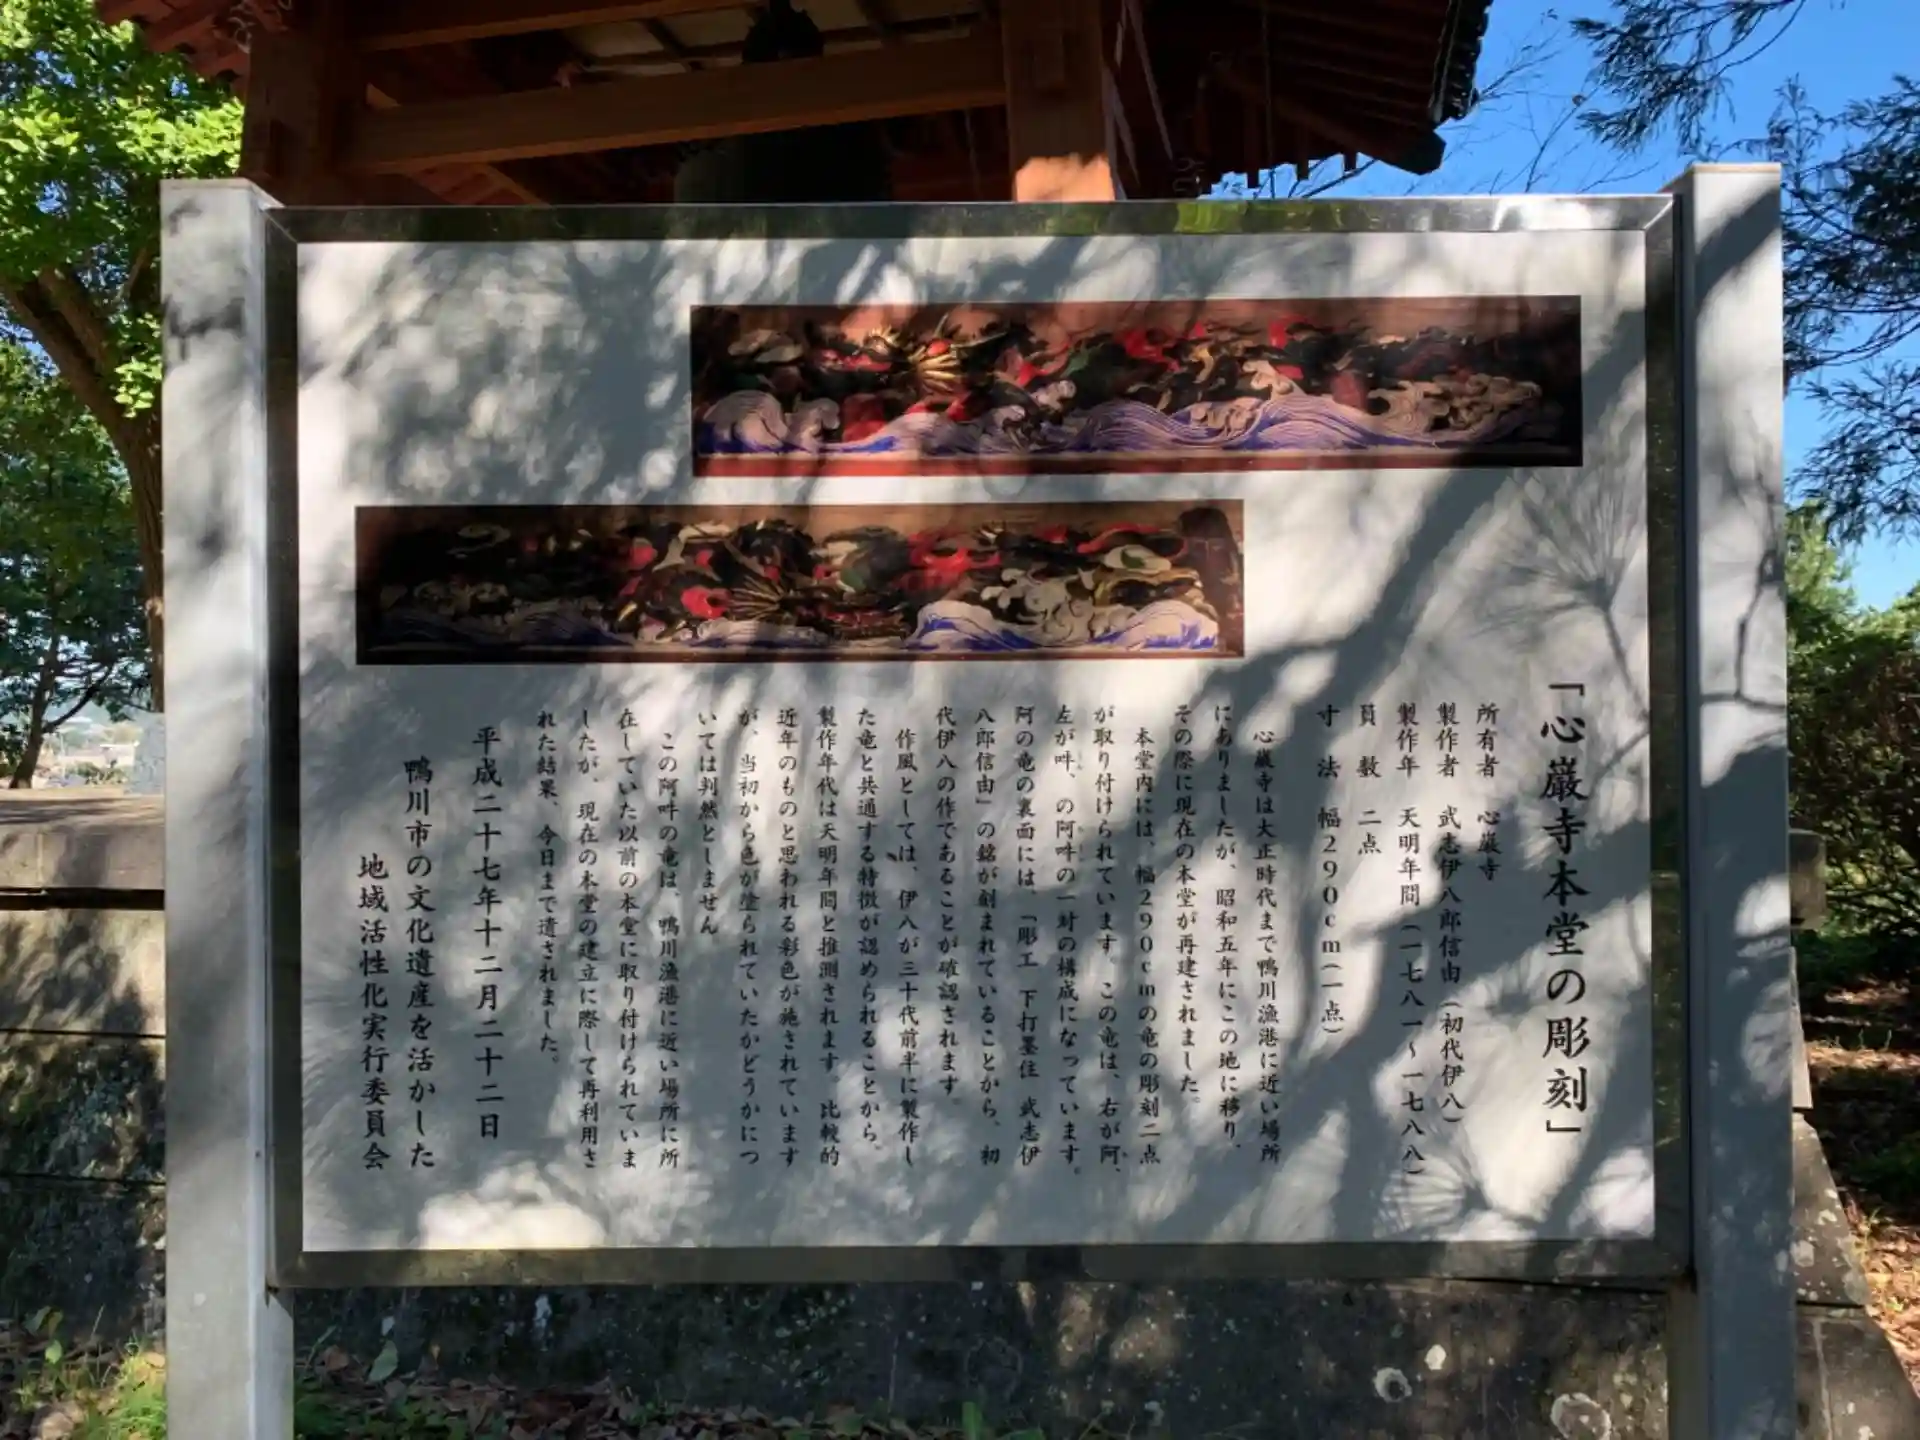 「心巌寺本堂の彫刻」
所有者　心巌寺
製作者　武志伊八郎信由（初代伊八）
製作年　天明年間（一七八一～一七八八）
員　数　二点
寸　法　幅290cm（一点）
心巌寺は大正時代まで鴨川漁港に近い場所
にありましたが、昭和五年にこの地に移り、
その際に現在の本堂が再建されました。
本堂内には、幅290cmの竜の彫刻二点
が取り付けられています。この竜は、右が阿、
左が吽、の阿吽の一対の構成になっています。
阿の竜の裏面には、「彫工　下打墨住　武志伊
八郎信由」の銘が刻まれていることから、初
代伊八の作であることが確認されます。
作風としては、伊八が三十代前半に製作し
た竜と共通する特徴が認められることから、
製作年代は天明年間と推測されます。比較的
近年のものと思われる彩色が施されています
が、当初から色が塗られていたかどうかにつ
いては判然としません
この阿吽の竜は、鴨川漁港に近い場所に所
在していた以前の本堂に取り付けられていま
したが、現在の本堂の建立に際して再利用さ
れた結果、今日まで遺されました。
平成二十七年十二月二十二日
鴨川市の文化遺産を活かした
地域活性化実行委員会